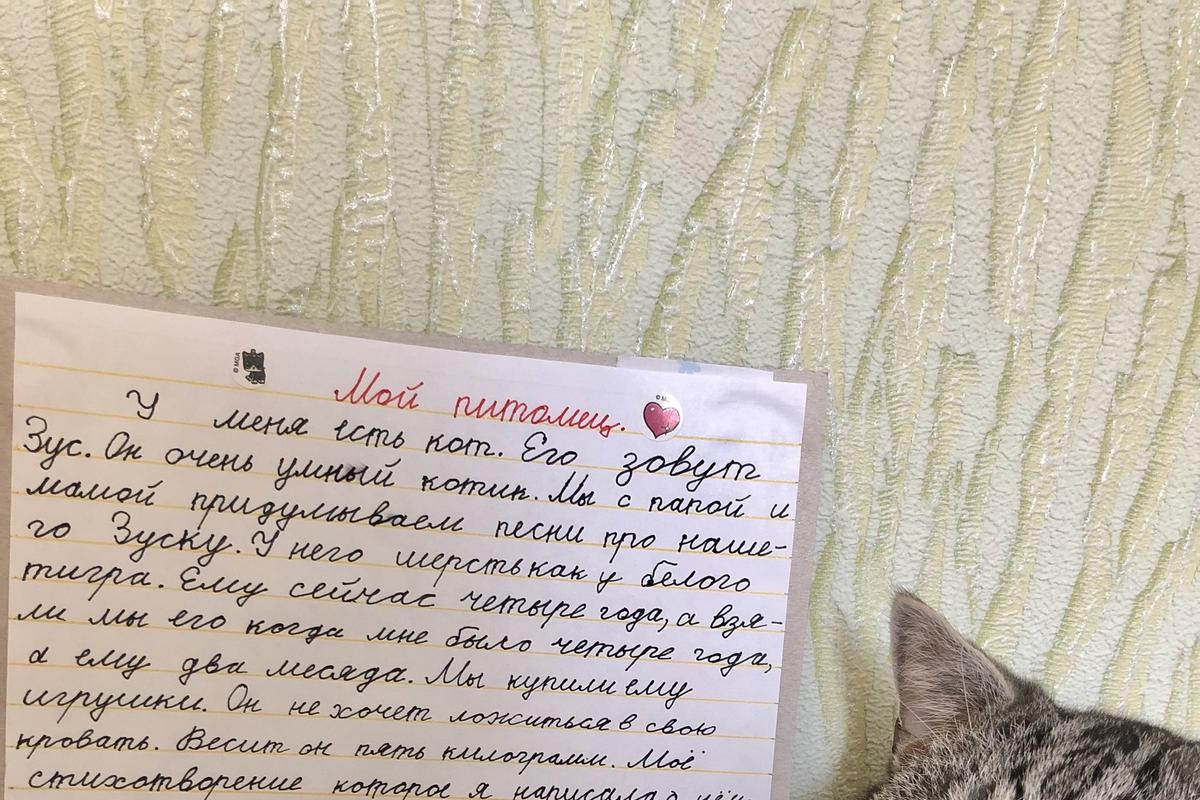 Мой питомец.
У меня есть кот. Его зовут
Зус. Он очень умный котик. Мы с папой и
мамой придумываем песни про наше-
го Зуску. У него шерсть как у белого
тигра. Ему сейчас четыре года, а взя-
ли мы его когда мне было четыре года,
а ему два месяца. Мы купили ему
игрушки. Он не хочет ложиться в свою
кровать. Весит он пять килограмм. Моё
стихотворение которое я написала о